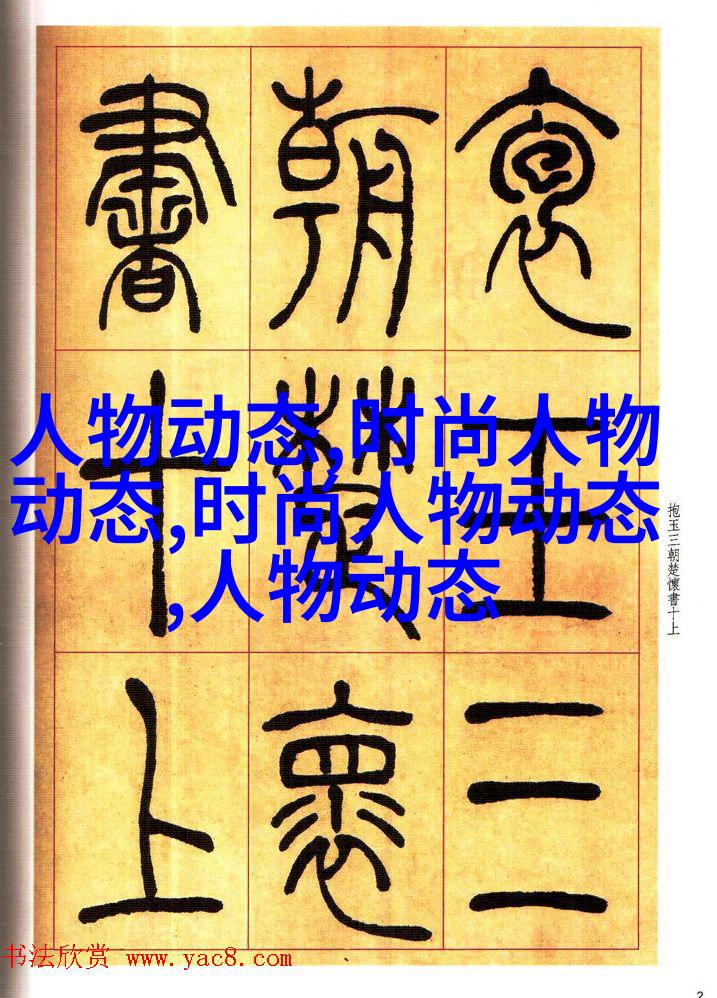 袌玉三
朝楚褱
書十上
抱玉三朝楚懷書十上
人物动态,时尚人物
动态,时尚人物动态
,人物动态
书法欣赏 www.yac8.com
2